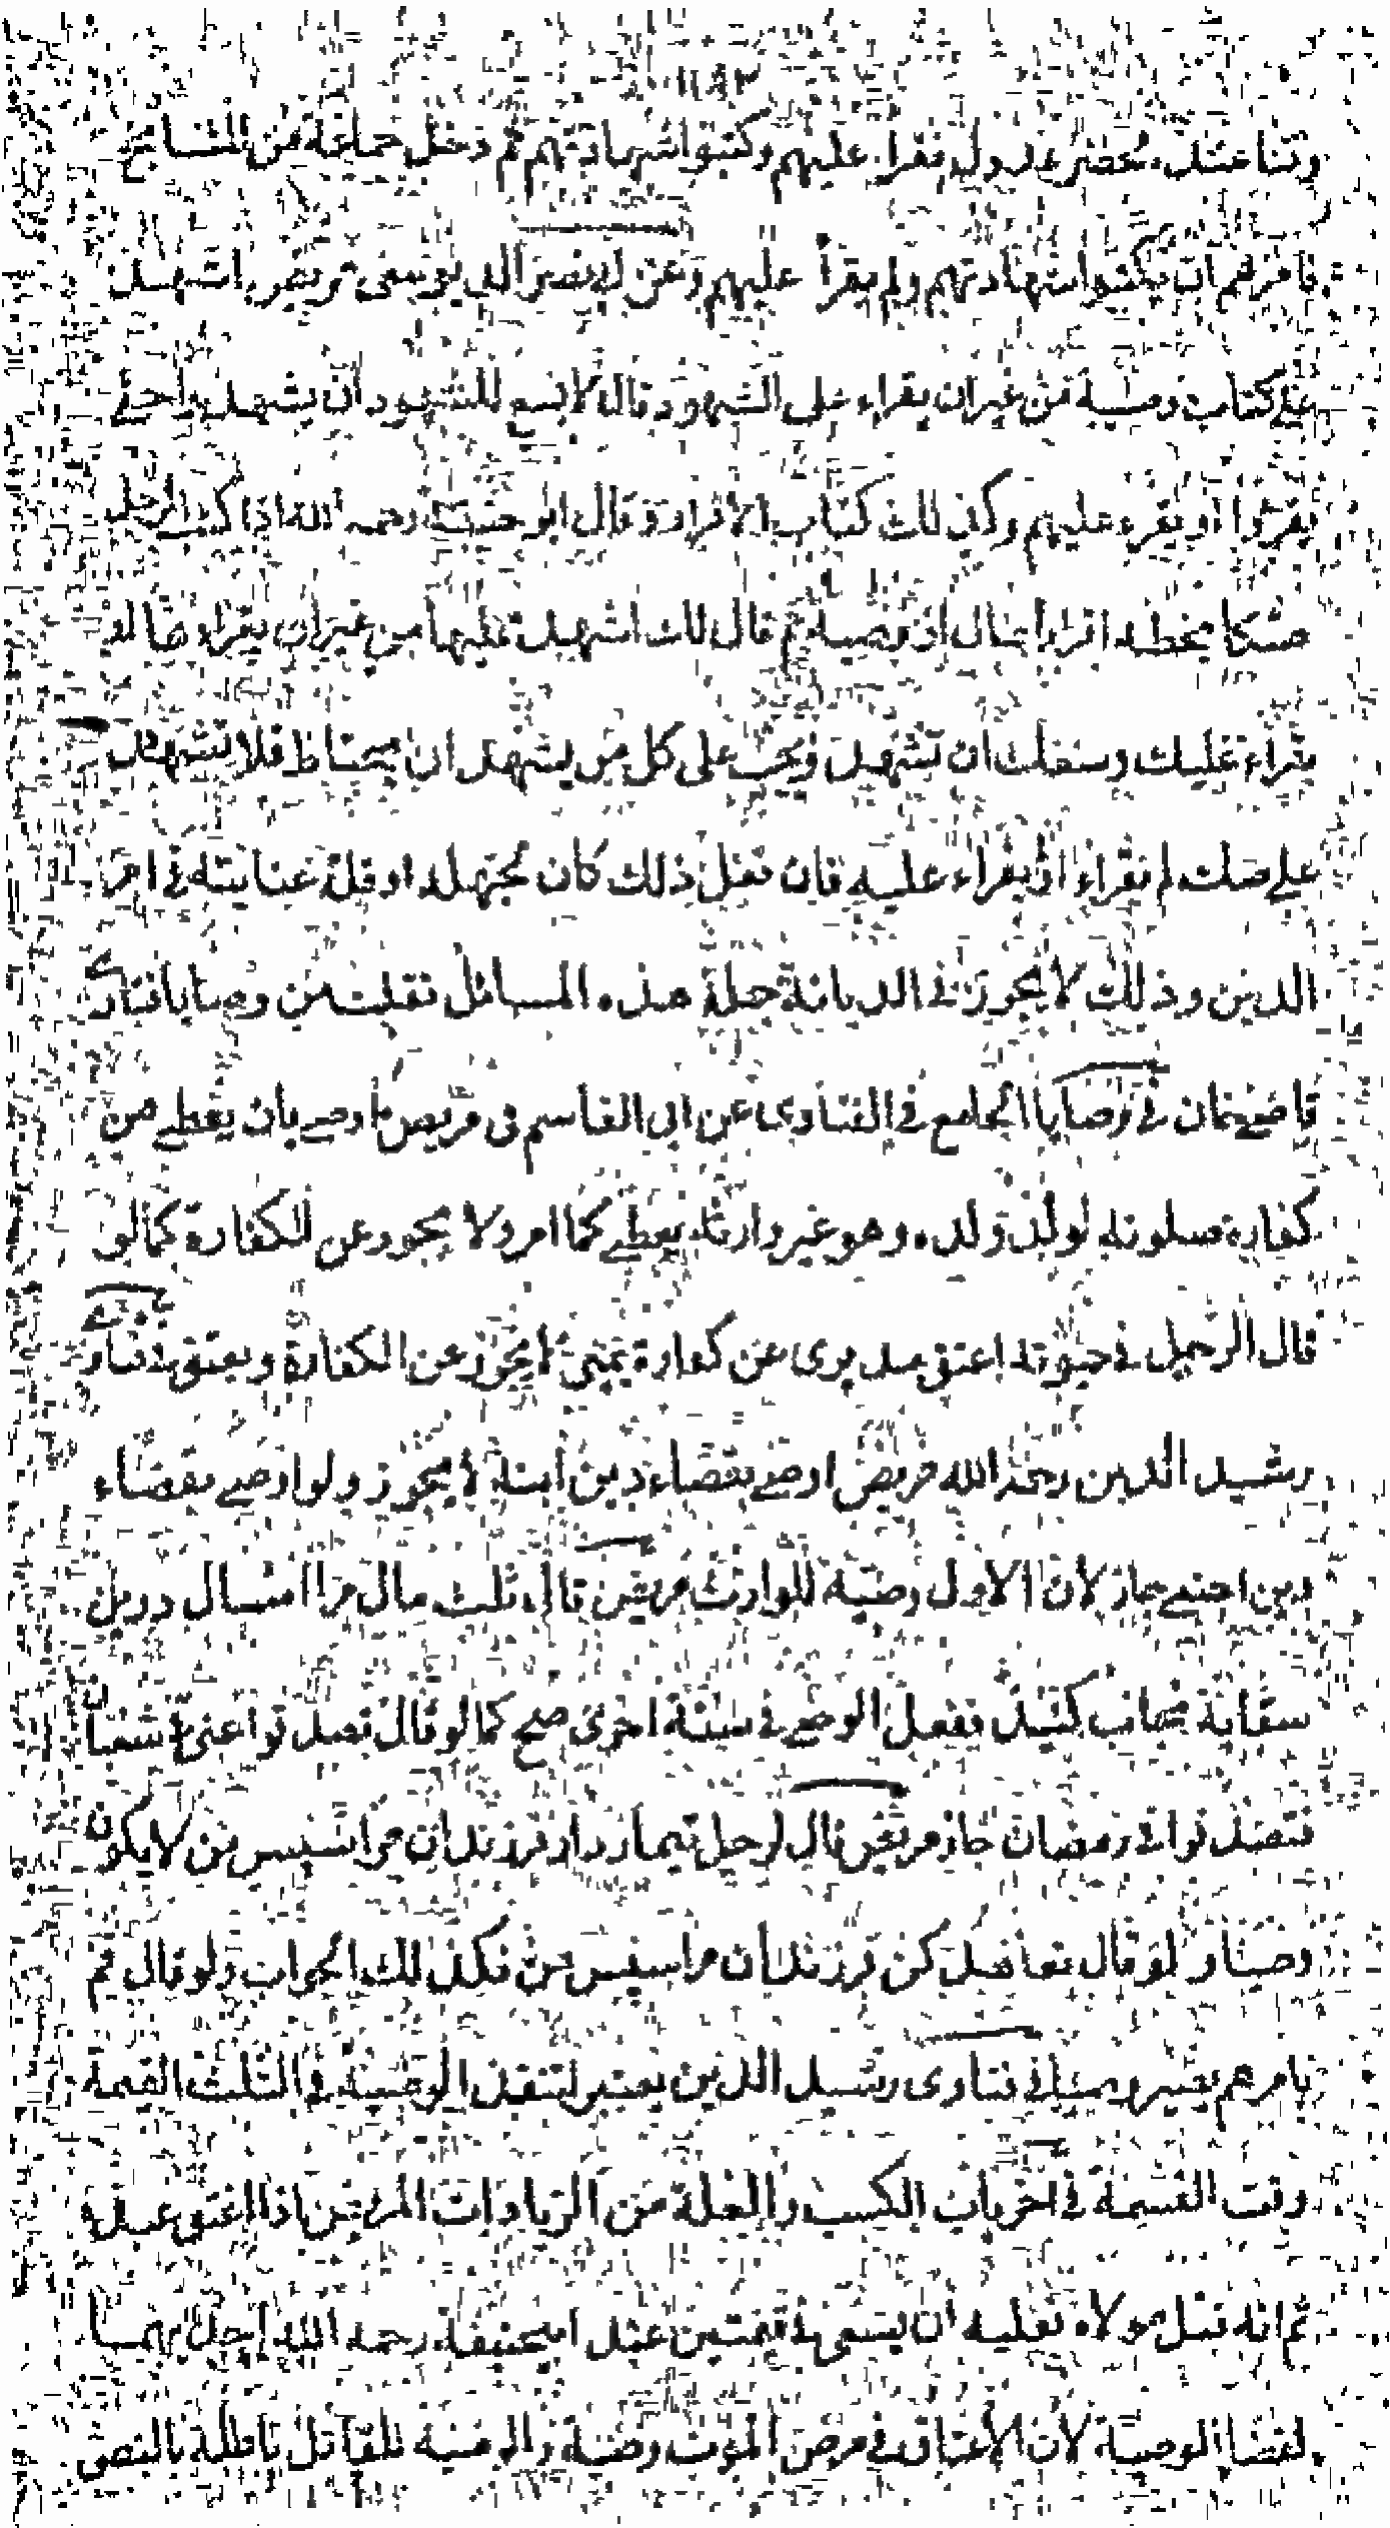 وقتا عنده محضر عدول فقرأ عليهم وكتبوا شهادتهم ثم دخل جماعة من المشايخ
فامرهم ان يكتبوا شهادتهم ولم يقرأ عليهم وعن ابي نصر الدبوسي مريض اشهد
على كتاب وصية من غير ان يقراء على الشهود قال لا يسع للشهود ان يشهدوا حتى
يقرؤا او يقرء عليهم وكذلك كتاب الاقرار وقال ابو حنيفة رحمه الله اذا كتب الرجل
صكا بخطه اقرارا بمال او وصية ثم قال لك اشهد عليها من غير ان يقراءها لو
يقراء عليك وسعك ان تشهد ويجب على كل من يشهد ان يحتاط فلا يشهد
على صك لم يقراء او يقراء عليه فان فعل ذلك كان لجهله او قلة عنايته في امر
الدين وذلك لا يجوز في الديانة جملة هذه المسائل نقلت من وصايا فتاوى
قاضيخان في وصايا الجامع في الفتاوى عن ابي القاسم في مريض اوصى بان يعطى من
كفارة صلوته لولد ولده وهو غير وارثه يعطى كما امر ولا يجوز عن الكفارة كما لو
قال الرجل في حيوته اعتق عبدي عن كفارة يميني لا يجوز عن الكفارة ويعتق فتاوى
رشيد الدين رحمه الله مريض اوصى بقضاء دين ابنه لا يجوز ولو اوصى بقضاء
دين اجنبي جاز لان الاول وصية للوارث مريض قال ثلث مال مرا امسال درين
سقاية بجانب كنيد ففعل الوصي في سنة اخرى صح كما لو قال تصدقوا عني في شعبان
فتصدقوا في رمضان جاز مريض قال لرجل تيمار دار فرزندان مرا سپس من لا يكون
وصيا ولو قال تعاهد كن فرزندان مرا سپس من فكذلك الجواب ولو قال غم
يصير وصيا في فتاوى رشيد الدين يعتبر لتنفيذ الوصية في الثلث القيمة
وقت القسمة في اخر باب الكسب والغلة من الزيادات المريض اذا اعتق عبده
ثم انه قتل مولاه فعليه ان يسعى في قيمتين عند ابي حنيفة رحمه الله احدٰيهما
لنقض الوصية لان الاعتاق في مرض الموت وصية والوصية للقاتل باطلة بالنص